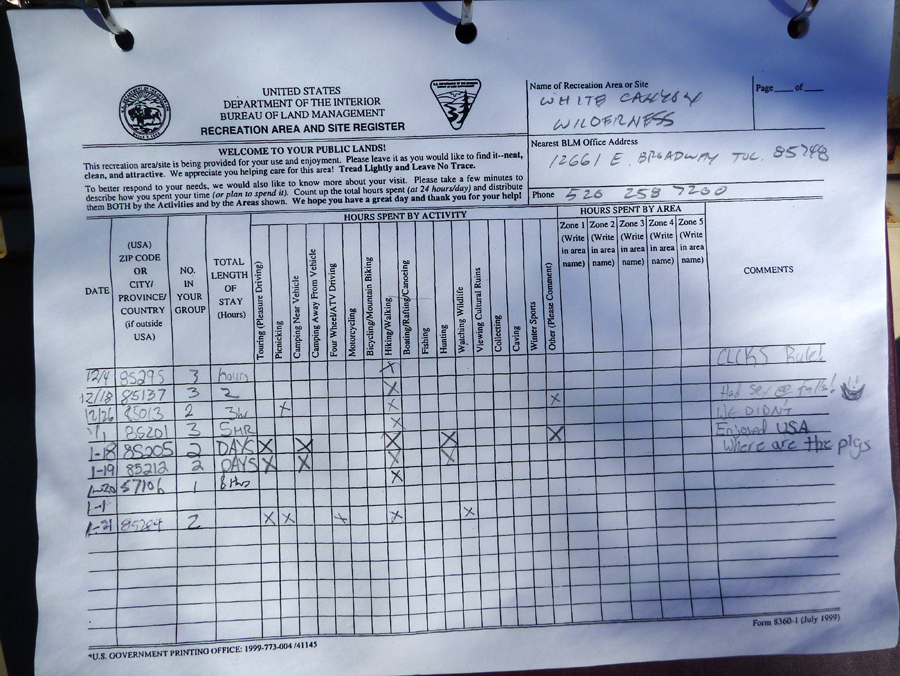 UNITED STATES
DEPARTMENT OF THE INTERIOR
BUREAU OF LAND MANAGEMENT
RECREATION AREA AND SITE REGISTER
Name of Recreation Area or Site
WHITE CANYON
WILDERNESS
Page____ of____
Nearest BLM Office Address
12661 E. BROADWAY TUC. 85748
Phone 520 258 7200
WELCOME TO YOUR PUBLIC LANDS!
This recreation area/site is being provided for your use and enjoyment. Please leave it as you would like to find it--neat,
clean, and attractive. We appreciate you helping care for this area! Tread Lightly and Leave No Trace.
To better respond to your needs, we would also like to know more about your visit. Please take a few minutes to
describe how you spent your time (or plan to spend it). Count up the total hours spent (at 24 hours/day) and distribute
them BOTH by the Activities and by the Areas shown. We hope you have a great day and thank you for your help!
DATE
(USA)
ZIP CODE
OR
CITY/
PROVINCE/
COUNTRY
(if outside
USA)
NO.
IN
YOUR
GROUP
TOTAL
LENGTH
OF
STAY
(Hours)
HOURS SPENT BY ACTIVITY
Touring (Pleasure Driving)
Picnicking
Camping Near Vehicle
Camping Away From Vehicle
Four Wheel/ATV Driving
Motorcycling
Bicycling/Mountain Biking
Hiking/Walking
Boating/Rafting/Canoeing
Fishing
Hunting
Watching Wildlife
Viewing Cultural Ruins
Collecting
Caving
Winter Sports
Other (Please Comment)
HOURS SPENT BY AREA
Zone 1
(Write
in area
name)
Zone 2
(Write
in area
name)
Zone 3
(Write
in area
name)
Zone 4
(Write
in area
name)
Zone 5
(Write
in area
name)
COMMENTS
12/4 85295 3 hours X Rule!
12/18 85137 3 2 X X
12/26 85013 2 3hr X X WE DIDN'T
1/1 85201 3 5HR X Enjoyed USA
1-18 85205 2 DAYS X X X X X Where are the pigs
1-19 85212 2 DAYS X X X X
1-20 57106 1 8 Hrs X
1-1
1-21 85204 2 X X X X X
*U.S. GOVERNMENT PRINTING OFFICE: 1999-773-004 /41145
Form 8360-1 (July 1999)